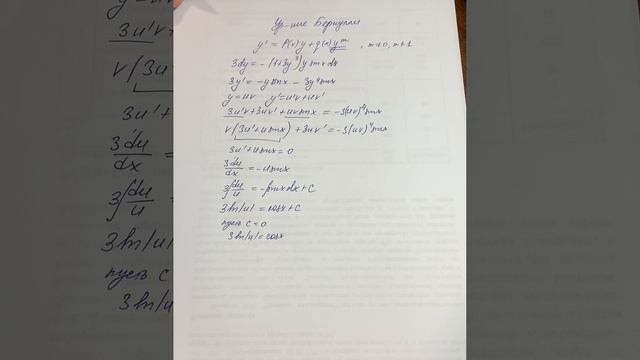 Ур-ние Бернулли
y' = P(x)y + q(x)y^m , m≠0, m≠1
3dy = -(1+3y³)y sinx dx
3y' = -y sinx - 3y⁴ sinx
y = uv y' = u'v + uv'
3u'v + 3uv' + uv sinx = -3(uv)⁴ sinx
v(3u' + u sinx) + 3uv' = -3(uv)⁴ sinx
3u' + u sinx = 0
3du/dx = -u sinx
3∫du/u = -∫sinx dx + C
3ln|u| = cosx + C
пусть C = 0
3ln|u| = cosx